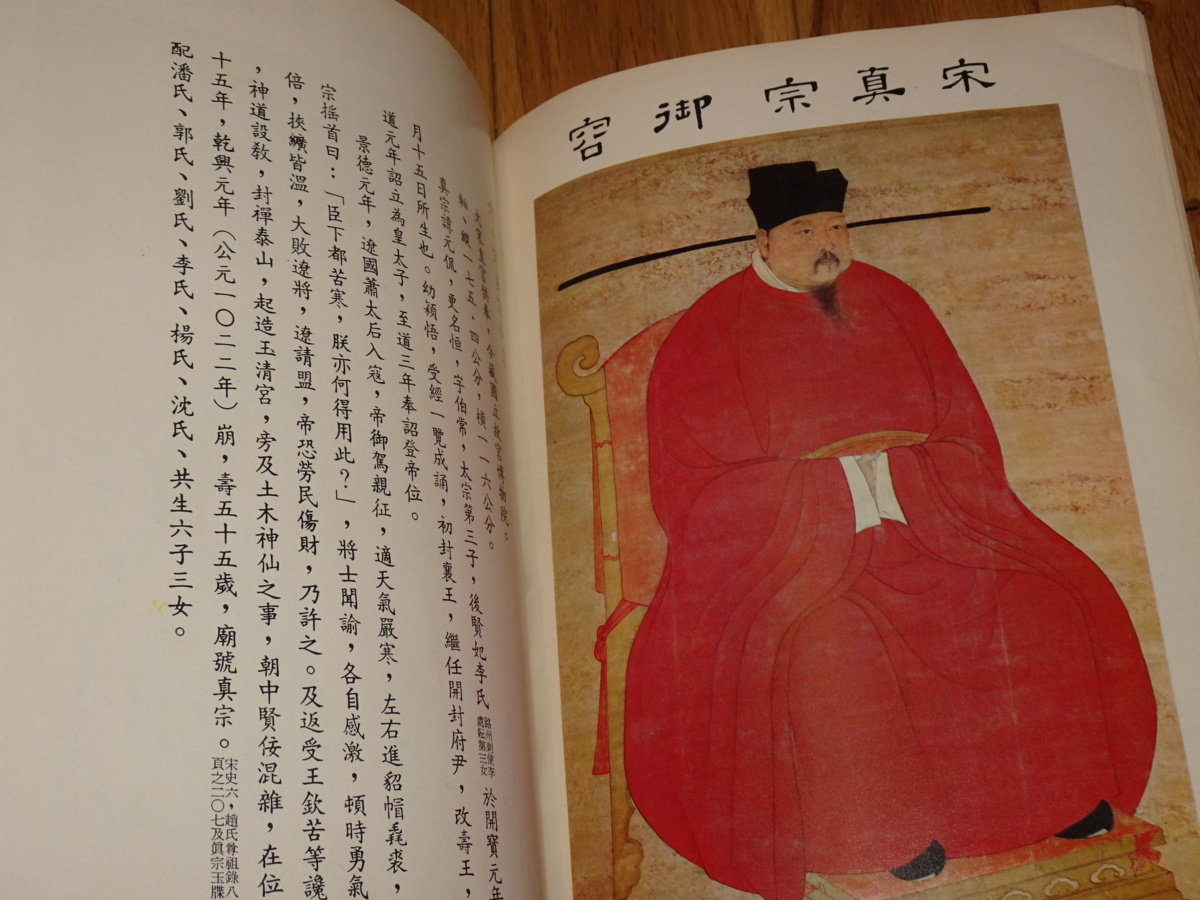 宋真宗御容
大宋皇宮供奉，今藏國立故宮博物院。
軸、縱一七五．四公分，橫一一六公分。
真宗諱元侃，更名恒，字伯常，太宗第三子，後賢妃李氏 於開寶元年
月十五日所生也。幼穎悟，受經一覽成誦，初封襄王，繼任開封府尹，改壽王，
道元年詔立為皇太子，至道三年奉詔登帝位。
景德元年，遼國蕭太后入寇，帝御駕親征，適天氣嚴寒，左右進貂帽毳裘，
宗搖首曰：「臣下都苦寒，朕亦何得用此？」，將士聞諭，各自感激，頓時勇氣
倍，挾纊皆溫，大敗遼將，遼請盟，帝恐勞民傷財，乃許之。及返受王欽苦等讒
，神道設教，封禪泰山，起造玉清宮，旁及土木神仙之事，朝中賢佞混雜，在位
十五年，乾興元年（公元一〇二二年）崩，壽五十五歲，廟號真宗。宋史六，趙氏尊祖錄八
頁之二〇七及真宗玉牒
配潘氏、郭氏、劉氏、李氏、楊氏、沈氏、共生六子三女。